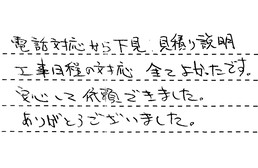 電話対応から下見 見積り説明
工事日程の対応 全てよかったです。
安心して依頼できました。
ありがとうございました。